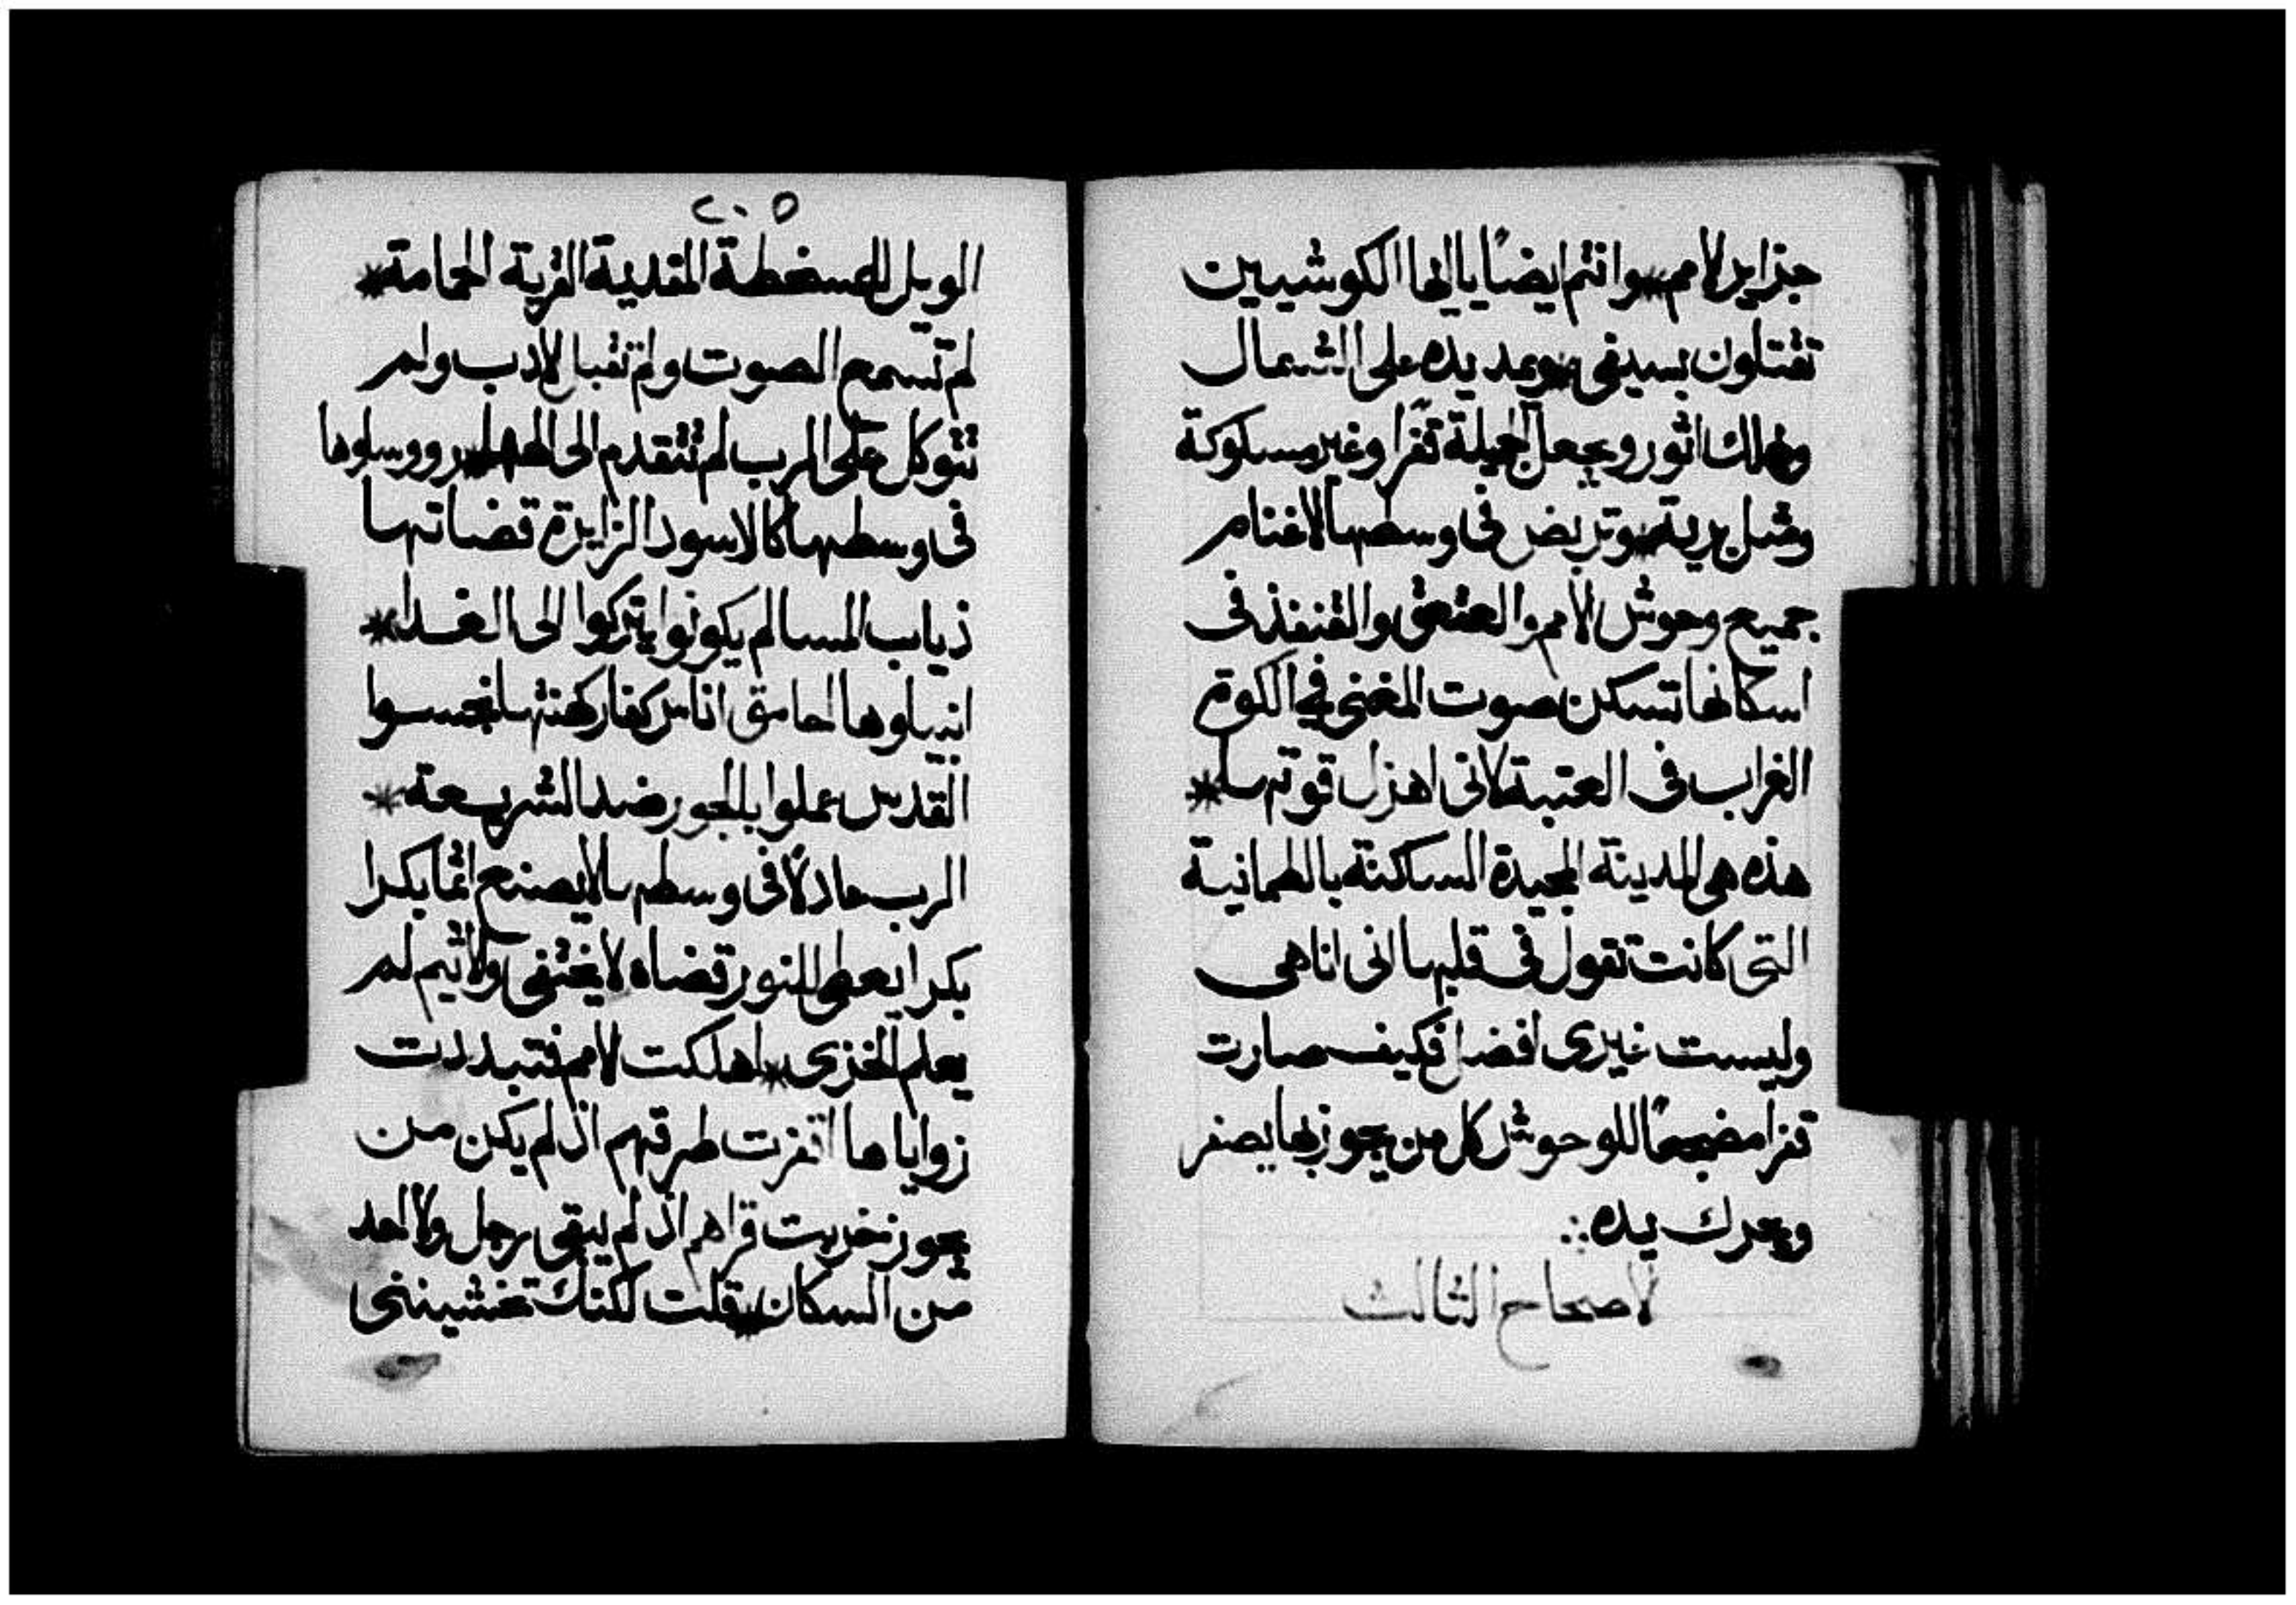 جزاير الامم * وانتم ايضًا يا ايها الكوشيين
تقتلون بسيفى * ويمد يده على الشمال
ويهلك اثور ويجعل الجميلة قفرًا وغير مسلوكة
ومثل برية * وتربض فى وسطها الاغنام
جميع وحوش الامم والعقعق والقنفذ فى
اسكانها تسكن صوت المغنى فى الكوة
الغراب فى العتبة لانى اهزل قوتها *
هذه هى المدينة المجيدة الساكنة بالطمانية
التى كانت تقول فى قلبها انى انا هى
وليست غيرى افضل فكيف صارت
قفرا مضجعًا للوحوش كل من يجوز بها يصفر
ويحرك يده ∴
الاصحاح الثالث
٢٠٥
الويل للمسخطة المفدية القرية الحمامة *
لم تسمع الصوت ولم تقبل الادب ولم
تتوكل على الرب لم تتقدم الى الهها * رووساوها
فى وسطها كالاسود الزايرة قضاتها
ذياب المسا لم يكونوا يتركوا الى الغدا *
انبياوها الحامق اناس كفار كهنتها نجسوا
القدس عملوا بالجور ضد الشريعة *
الرب عادلًا فى وسطها لا يصنع اثمًا بكرا
بكرا يعطى للنور قضاه لا يختفى والاثيم لم
يعلم الخزى * اهلكت الامم فتبددت
زواياها اقفرت طرقهم اذ لم يكن من
يجوز خربت قراهم اذ لم يبقى رجل ولا احد
من السكان * قلت لكنك تخشيننى